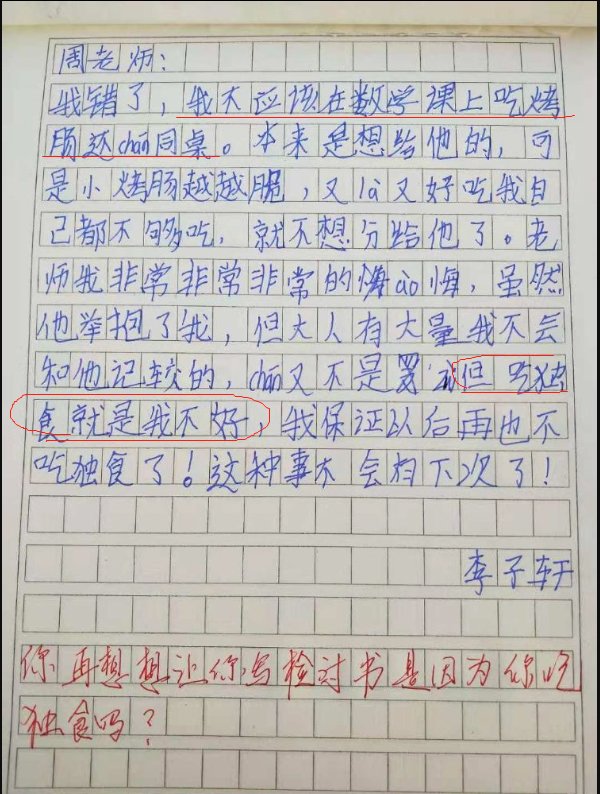 周老师:
我错了,我不应该在数学课上吃烤
肠还chán同桌。本来是想给他的,可
是小烤肠越越脆,又là又好吃我自
己都不够吃,就不想分给他了。老
师我非常非常非常的ào悔,虽然
他举抱了我,但大人有大量我不会
和他记较的,chán又不是 但吃独
食就是我不好,我保证以后再也不
吃独食了!这种事不会有下次了!
李子轩
你再想想让你写检讨书是因为你吃
独食吗?